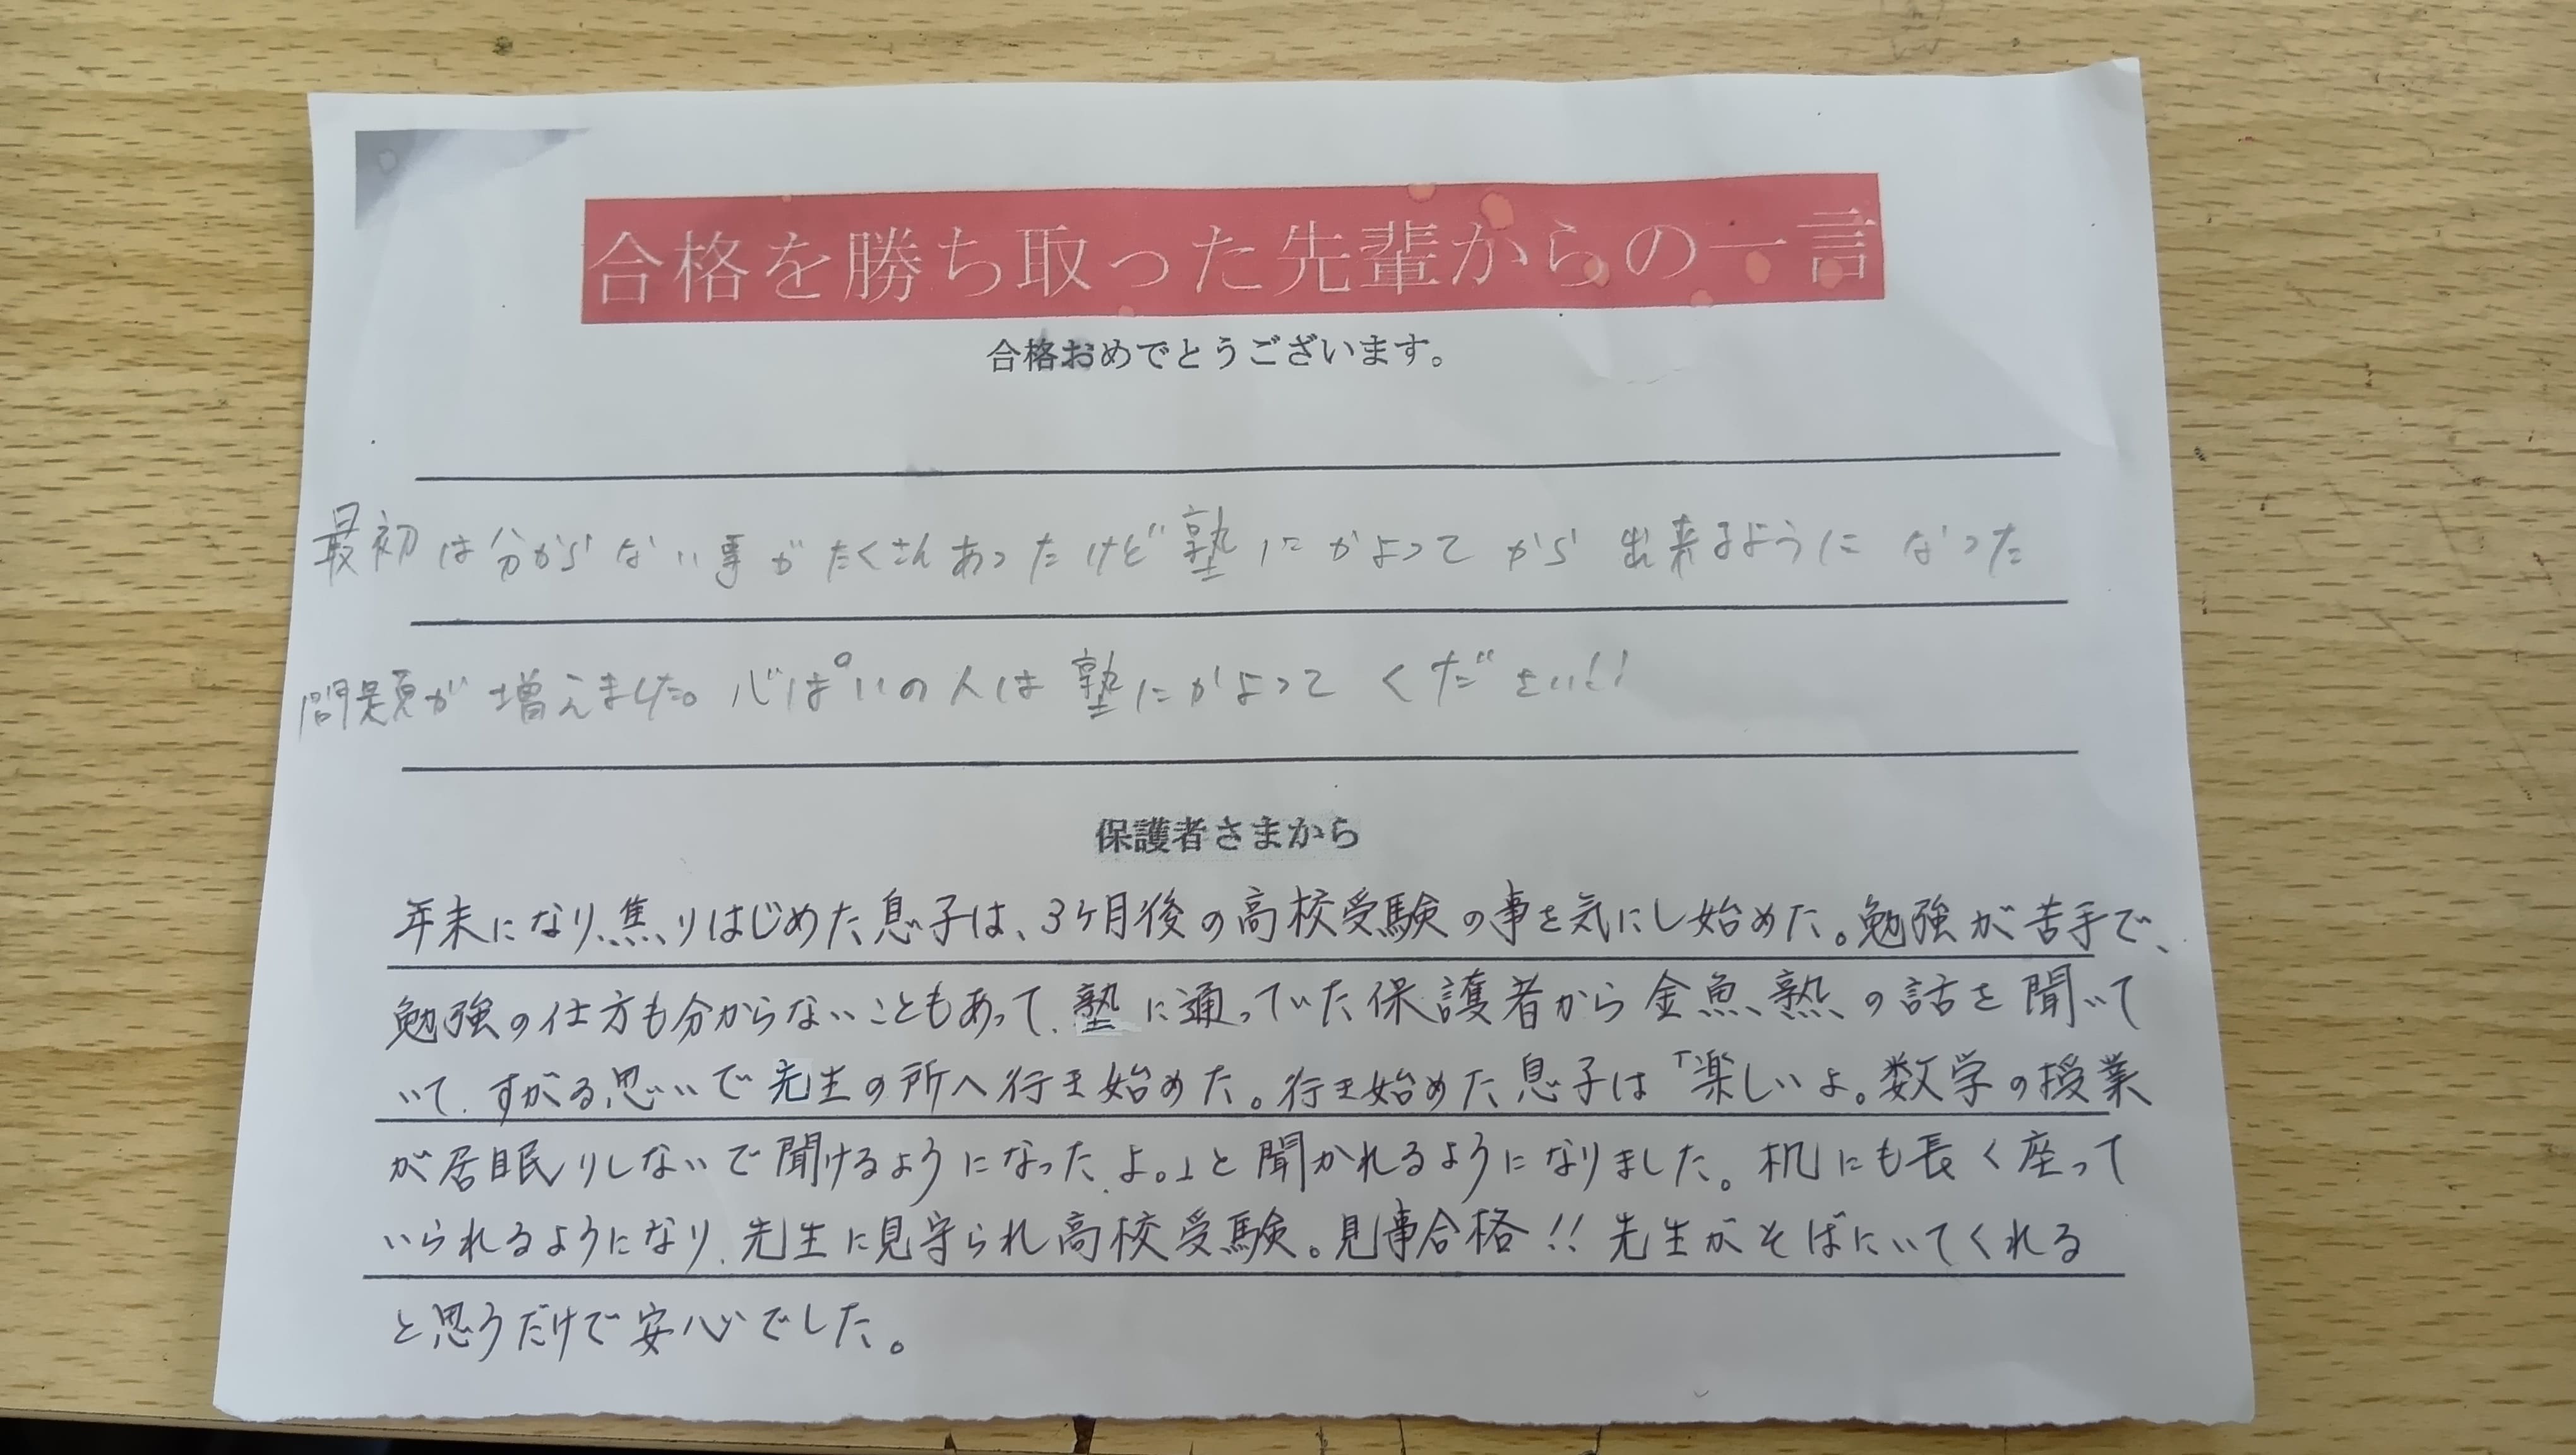 合格を勝ち取った先輩からの一言
合格おめでとうございます。
最初は分からない事がたくさんあったけど塾にかよってから出来るようになった
問題が増えました。心ぱいの人は塾にかよってください!!
保護者さまから
年末になり、焦りはじめた息子は、3ヶ月後の高校受験の事を気にし始めた。勉強が苦手で、
勉強の仕方も分からないこともあって、塾に通っていた保護者から金魚熟の話を聞いて
いて、すがる思いで先生の所へ行き始めた。行き始めた息子は「楽しいよ。数学の授業
が居眠りしないで聞けるようになったよ。」と聞かれるようになりました。机にも長く座って
いられるようになり、先生に見守られ高校受験。見事合格!!先生がそばにいてくれる
と思うだけで安心でした。